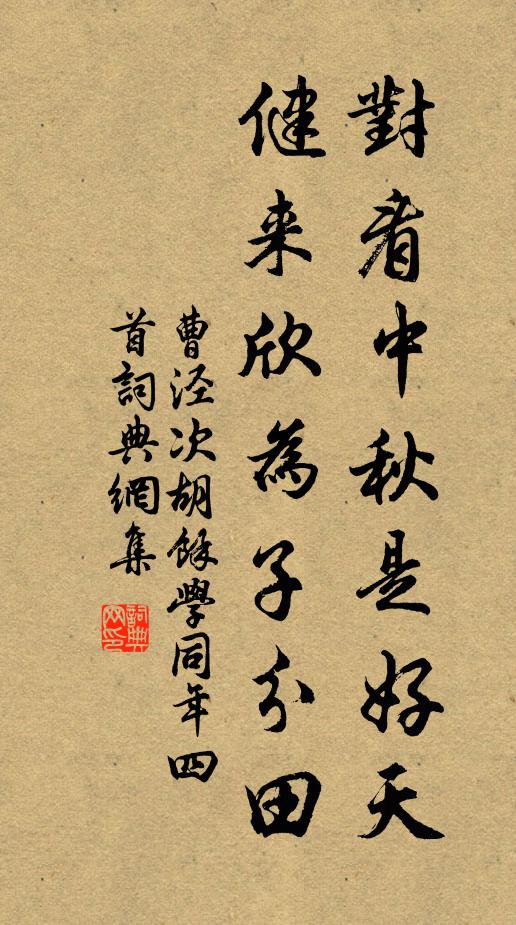 對看中秋是好天
健来欣為子分田
曹涇次胡餘學同年四
首詞典網集
詞典
网印